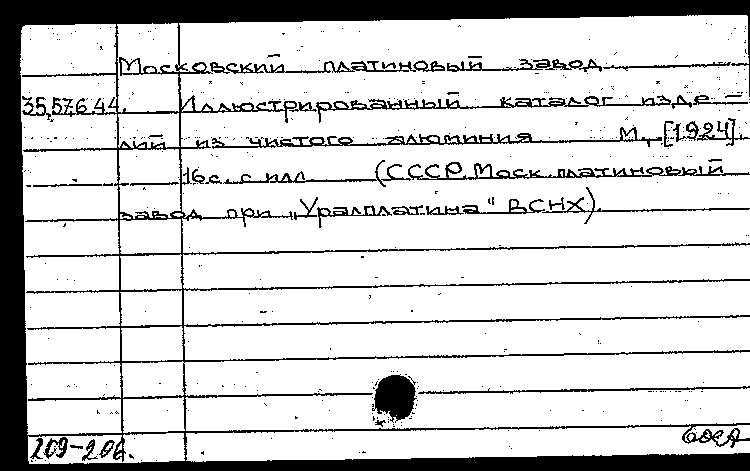 Московский платиновый завод
35.576.44. Иллюстрированный каталог изде-
лий из чистого алюминия М., [1924].
16 с. с илл. (СССР. Моск. платиновый
завод при „Уралплатина" ВСНХ).
209-206.